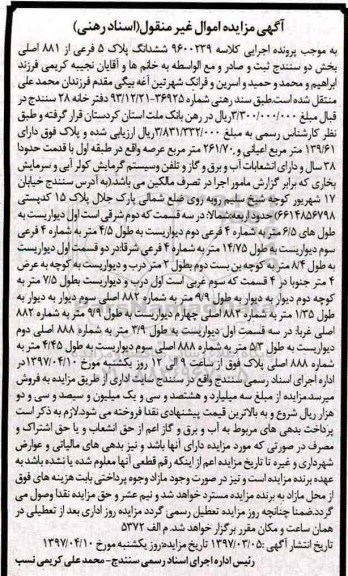 آگهی مزایده اموال غیر منقول(اسناد رهنی)
به موجب پرونده اجرایی کلاسه ۹۶۰۰۲۳۹ ششدانگ پلاک ۵ فرعی از ۸۸۱ اصلی
بخش دو سنندج ثبت و صادر و مع الواسطه به خانم ها و آقایان نجیبه کریمی فرزند
ابراهیم و محمد و حمید و اسرین و فرانک شهرتین آغه بیگی مقدم فرزندان محمد علی
منتقل شده است.طبق سند رهنی شماره ۳۶۹۲۵-۹۳/۱۲/۲۱ دفتر خانه ۲۸ سنندج در
قبال مبلغ ۳/۳۰۰/۰۰۰/۰۰۰ریال در رهن بانک ملت استان کردستان قرار گرفته و طبق
نظر کارشناس رسمی به مبلغ ۳/۸۳۱/۳۳۲/۰۰۰ریال ارزیابی شده و پلاک فوق دارای
۱۳۹/۶۱ متر مربع اعیانی و ۲۶۱/۷۰ متر مربع عرصه واقع در طبقه اول با قدمت حدودا
۳۸ سال و دارای انشعابات آب و برق و گاز و تلفن وسیستم گرمایش کولر آبی و سرمایش
بخاری که برابر گزارش مامور اجرا در تصرف مالکین می باشد.(به آدرس سنندج خیابان
۱۷ شهریور کوچه شیخ سلیم روبه روی ضلع شمالی پارک جلال پلاک ۱۵ کدپستی
۶۶۱۴۸۵۶۷۹۸) حدود اربعه:شمالا: در سه قسمت که دوم شرقی است اول دیواریست به
طول های ۶/۵ متر به شماره ۴ فرعی دوم دیواریست به طول ۴/۵ متر به شماره ۴ فرعی
سوم دیواریست به طول ۱۴/۷۵ متر به شماره ۴ فرعی شرقا:در دو قسمت اول دیواریست
به طول ۸/۴ متر به کوچه بن بست دوم بطول ۲ متر درب و دیواریست به کوچه به عرض
۴ متر جنوبا در ۴ قسمت که سوم غربی است اول درب و دیواریست بطول ۷/۵ متر به
کوچه دوم دیوار به دیوار به طول ۹/۹ متر به شماره ۸۸۲ اصلی سوم دیوار به دیوار به
طول ۱/۳۵ متر به شماره ۸۸۲ اصلی چهارم دیواریست به طول ۹/۹ متر به شماره ۸۸۲
اصلی غربا: در سه قسمت اول دیواریست به طول ۳/۹ متر به شماره ۸۸۸ اصلی دوم
دیواریست به طول ۵/۳ متر به شماره ۸۸۸ اصلی سوم دیواریست به طول ۴/۴۵ متر به
شماره ۸۸۸ اصلی پلاک فوق از ساعت ۹ الی ۱۲ روز یکشنبه مورخ ۱۳۹۷/۰۴/۱۰در
اداره اجرای اسناد رسمی سنندج واقع در سنندج سایت اداری از طریق مزایده به فروش
میرسد.مزایده از مبلغ سه میلیارد و هشتصد و سی و یک میلیون و سیصد و سی و دو
هزار ریال شروع و به بالاترین قیمت پیشنهادی نقدا فروخته می شود.لازم به ذکر است
پرداخت بدهی های مربوط به آب و برق و گاز اعم از حق انشعاب و یا حق اشتراک و
مصرف در صورتی که مورد مزایده دارای آنها باشد و نیز بدهی های مالیاتی و عوارض
شهرداری و غیره تا تاریخ مزایده اعم از اینکه رقم قطعی آنها معلوم شده یا نشده باشد به
عهده برنده مزایده است و نیز در صورت وجود مازاد وجوه پرداختی بابت هزینه های فوق
از محل مازاد به برنده مزایده مسترد خواهد شد و نیم عشر و حق مزایده نقدا وصول می
گردد.ضمنا چنانچه روز مزایده تعطیل رسمی گردد مزایده روز اداری بعد از تعطیلی در
همان ساعت و مکان مقرر برگزار خواهد شد. م الف ۵۳۷۲
تاریخ انتشار آگهی :۱۳۹۷/۰۳/۰۵ تاریخ مزایده:روز یکشنبه مورخ ۱۳۹۷/۰۴/۱۰
رئیس اداره اجرای اسناد رسمی سنندج-محمد علی کریمی نسب